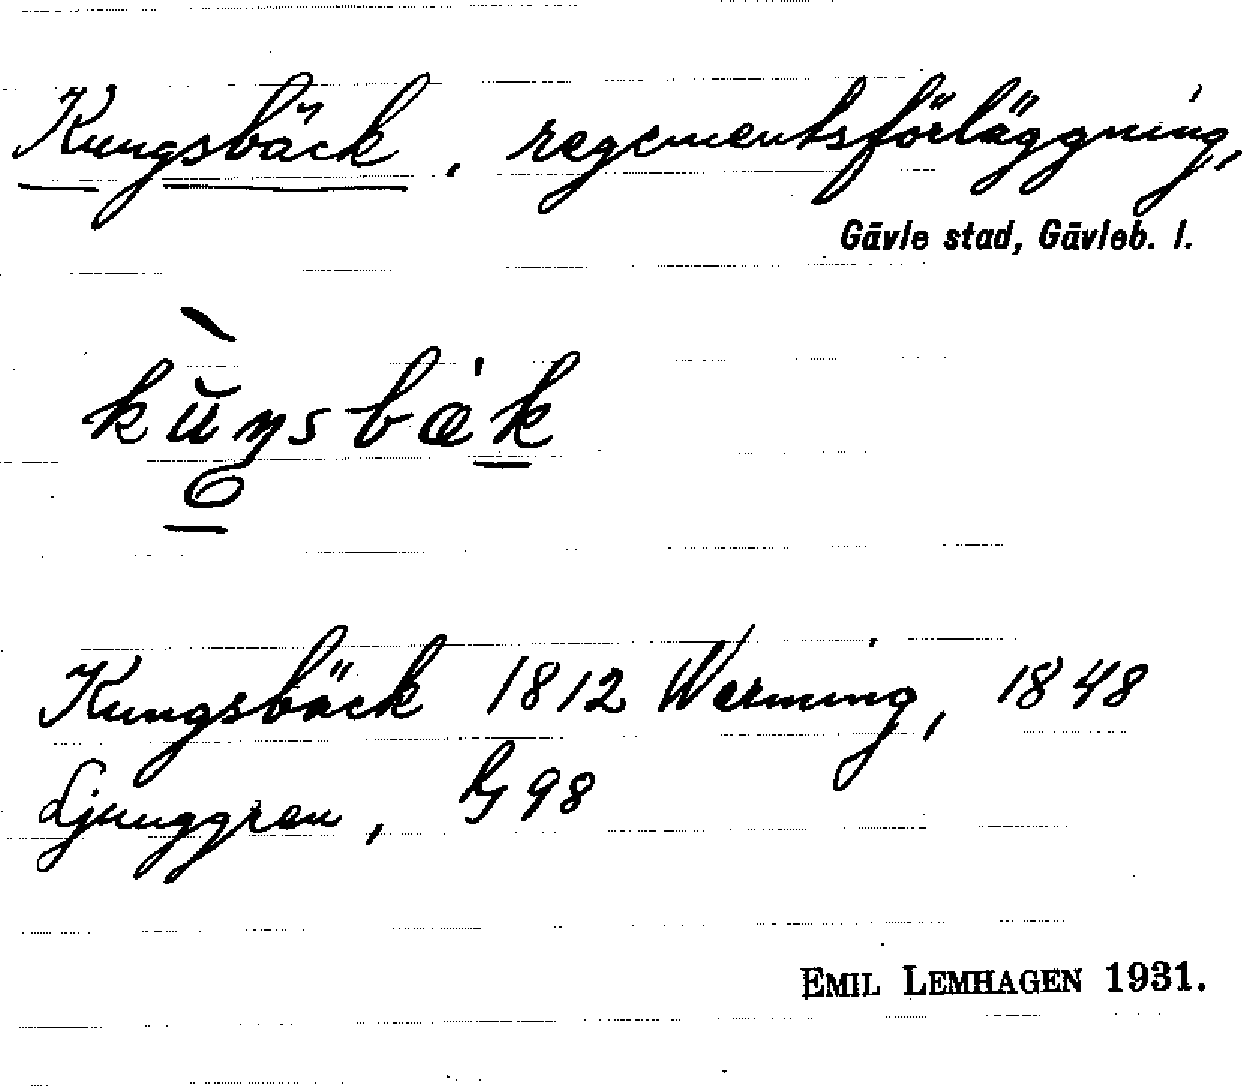 Kungsbäck, regementsförläggning,
Gävle stad, Gävleb. l.
Kungsbäck 1812 Werming, 1848
Ljunggren, G 98
EMIL LEMHAGEN 1931.